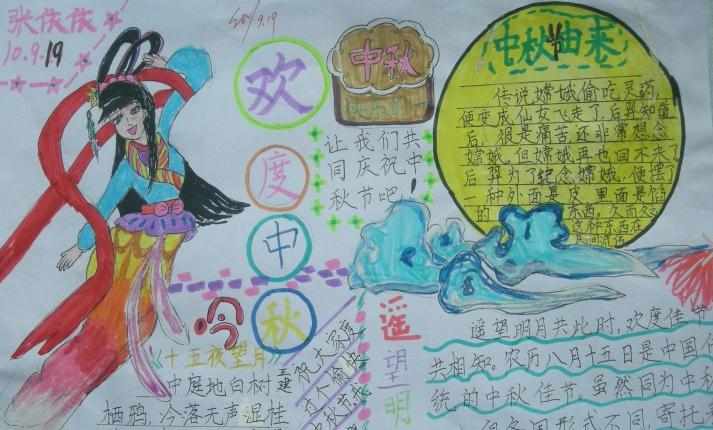 张依依
10.9.19
10/9.19
欢
度
中
秋
中秋
让我们共
同庆祝中
秋节吧!
中秋由来
传说嫦娥偷吃灵药,
便变成仙女飞走了,后羿知道
后,很是痛苦还非常想念
嫦娥。但嫦娥再也回不来了
后羿为了纪念嫦娥,便摆了
一种外面是皮,里面是馅
的 东西,久而久之
这种东西在
民间流传
吟
《十五夜望月》
王建
中庭地白树
栖鸦,冷落无声湿桂
祝大家度
中秋节快
遥
望
明
遥望明月共此时,欢度佳节
共相知。农历八月十五日是中国传
统的中秋佳节,虽然同为中秋
但各国形式不同,寄托着